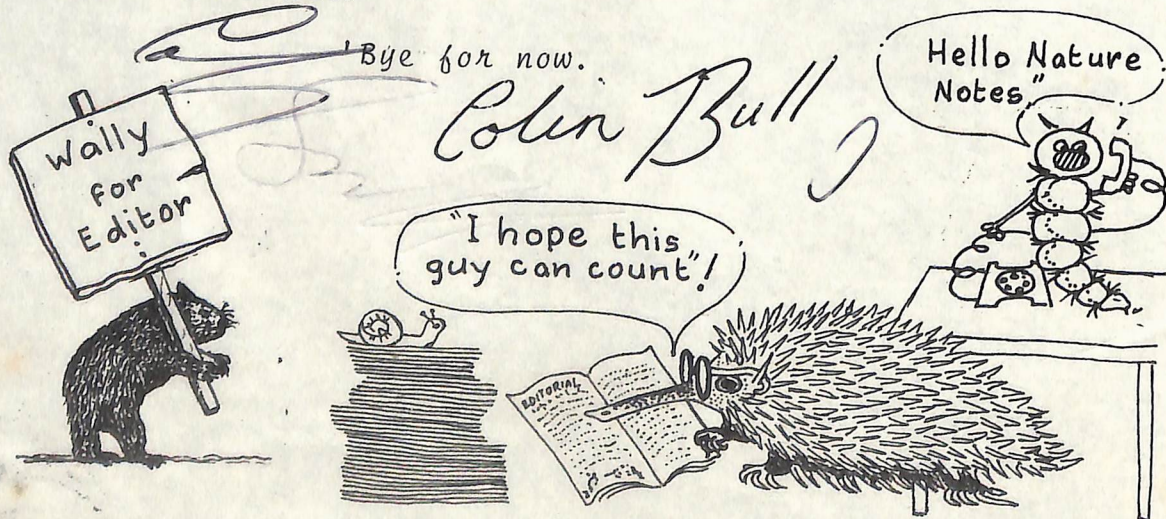 'Bye for now.
Colin Bull
Hello Nature
Notes"
Wally
for
Editor
"I hope this
guy can count"!
EDITORIAL